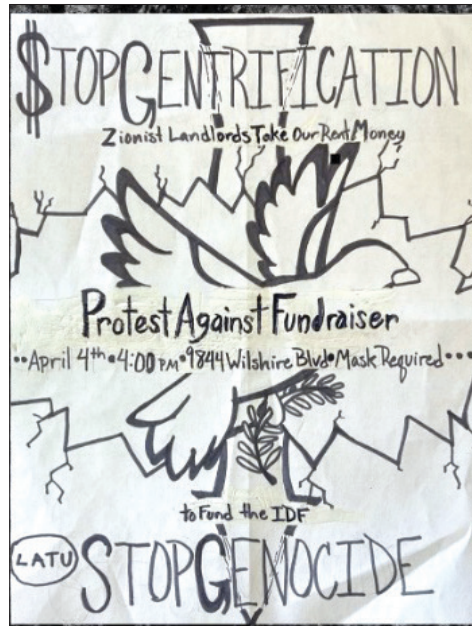 $TOPGENTRIFICATION
Zionist Landlords Take Our Rent Money
Protest Against Fundraiser
••April 4th•4:00PM•9844 Wilshire Blvd•Mask Required•••
to Fund the IDF
LATU
STOPGENOCIDE